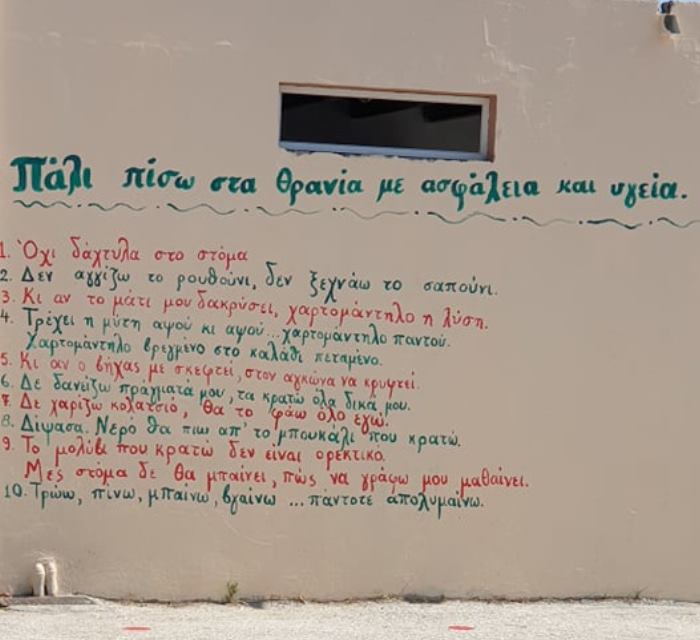 Πάλι πίσω στα θρανία με ασφάλεια και υγεία.
1. Όχι δάχτυλα στο στόμα
2. Δεν αγγίζω το ρουθούνι, δεν ξεχνάω το σαπούνι.
3. Κι αν το μάτι μου δακρύσει, χαρτομάντηλο η λύση.
4. Τρέχει η μύτη αψού κι αψού...χαρτομάντηλο παντού.
Χαρτομάντηλο βρεγμένο στο καλάθι πεταμένο.
5. Κι αν ο βήχας με σκεφτεί, στον αγκώνα να κρυφτεί.
6. Δε δανείζω πράγματά μου, τα κρατώ όλα δικά μου.
7. Δε χαρίζω κολατσιό, θα το φάω όλο εγώ.
8. Δίψασα. Νερό θα πιω απ' το μπουκάλι που κρατώ.
9. Το μολύβι που κρατώ δεν είναι ορεκτικό.
Μες στόμα δε θα μπαίνει, πώς να γράφω μου μαθαίνει.
10. Τρώω, πίνω, μπαίνω, βγαίνω ...πάντοτε απολυμαίνω.